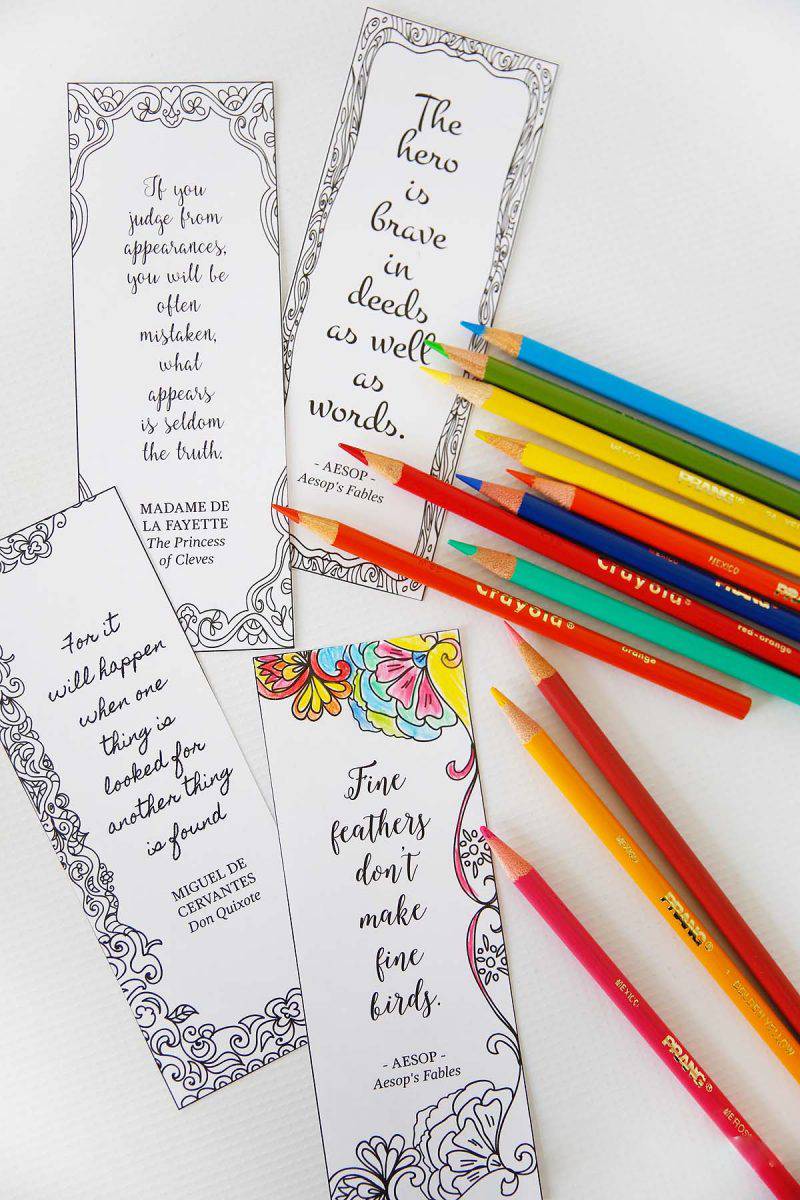 If you
judge from
appearances,
you will be
often
mistaken,
what
appears
is seldom
the truth.
MADAME DE
LA FAYETTE
The Princess
of Cleves
The
hero
is
brave
in
deeds
as well
as
words.
- AESOP -
Aesop's Fables
For it
will happen
when one
thing is
looked for
another thing
is found
MIGUEL DE
CERVANTES
Don Quixote
Fine
feathers
don't
make
fine
birds.
- AESOP -
Aesop's Fables
MEXICO PRANG®
MEXICO
MEXICO PRANG
Crayola® red-orange
Crayola® orange
MEXICO PRANG® GOLDEN YELLOW
MEXICO PRANG® MEROS